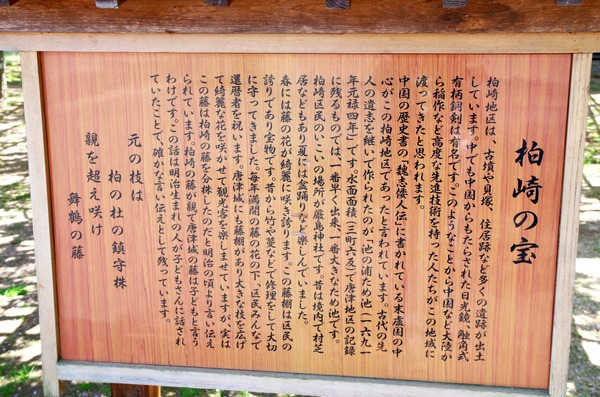 柏崎の宝
柏崎地区は、古墳や貝塚、住居跡など多くの遺跡が出土
しています。中でも中国からもたらされた日光鏡、触角式
有柄銅剣は有名です。このようなことから中国など大陸か
ら稲作など高度な先進技術を持った人たちがこの地域に
渡ってきたと思われます。
中国の歴史書の「魏志倭人伝」に書かれている末盧国の中
心がこの柏崎地区であったと言われています。古代の先
人の遺志を継いで作られたのが「池の浦ため池(一六九一
年元禄四年)」です。水面面積(三町六反)で唐津地区の記録
に残るものでは、一番早く出来、一番大きなため池です。
柏崎区民のいこいの場所が厳島神社です。昔は境内で村芝
居などもあり、夏には盆踊りなど楽しんでいました。
春には藤の花が綺麗に咲き誇ります。この藤棚は区民の
誇りであり宝物です。昔から竹や葛などで修理をして大切
に守ってきました。毎年満開の藤の花の下、区民みんなで
還暦者を祝います。唐津城にも藤棚があり大きな枝を広げ
て綺麗な花を咲かせて観光客を楽しませていますが、実は
この藤は柏崎の藤を分株したのだと明治の頃より言い伝え
られています。柏崎の藤が親で唐津城の藤は子どもと言う
わけです。この話は明治生まれの人が子どもさんに話され
ていたことで、確かな言い伝えとして残っています。
元の枝は
柏の杜の鎮守株
親を超え咲け
舞鶴の藤